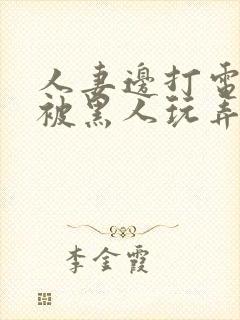 人妻邊打電
被黑人玩弄
李金霞